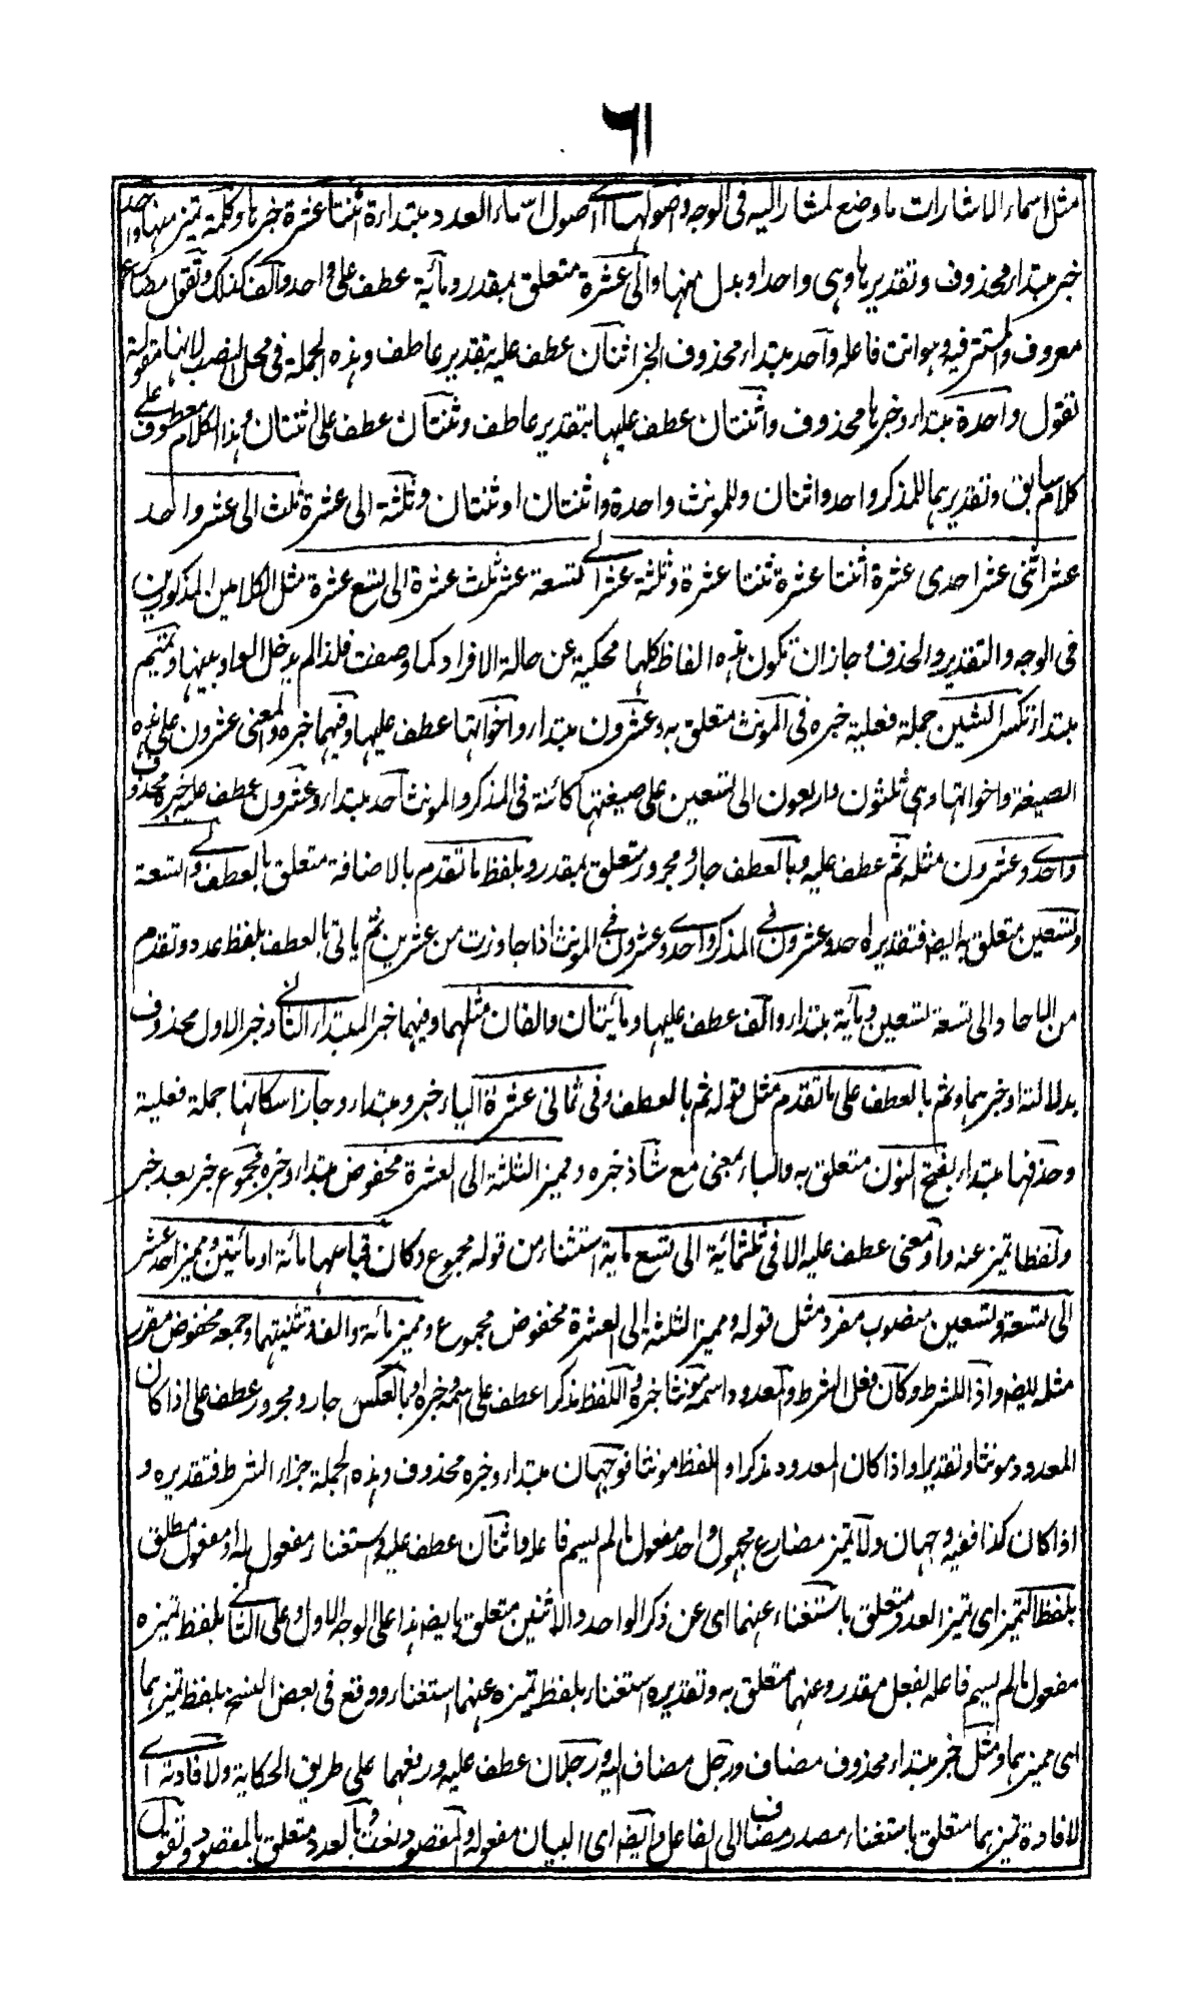 ٦١
مثل اسماء الاشارات ما وضع لمشار اليه فى الوجه واصولها اے اصول اسماء العدد مبتداء اثنتا عشرة خبرها وكلمة تميز منها واحد
خبر مبتداء محذوف وتقديرها وهى واحد او بدل منها والى عشرة متعلق بمقدر ومأية عطف على واحد والف كذلك وتقول مضارع
معروف والمستتر فيه وهو انت فاعله واحد مبتداء محذوف الخبر اثنان عطف عليه بتقدير عاطف وهذه الجملة فى محل النصب لانها مقولة
لقول واحدة مبتداء وخبرها محذوف واثنتان عطف عليها بتقدير عاطف وثنتان عطف على اثنتان وهذا الكلام معطوف على
كلام سابق وتقديرهما للمذكر واحد واثنان وللمونث واحدة واثنتان او ثنتان وثلثة الى عشرة ثلث الى عشر واحد
عشر اثنى عشر احدى عشرة اثنتا عشرة ثنتا عشرة وثلثة عشر اے تسعة عشر ثلث عشرة الى تسع عشرة مثل الكلامين المذكورين
فى الوجه والتقدير والحذف وجاز ان تكون هذه الفاظ كلها محكية عن حالة الافراد كما وصفت فلذا لم يدخل الواو بينها وتميم
مبتداء تكسر الشين جملة فعلية خبره فى المونث متعلق به وعشرون مبتداء واخواتها عطف عليها وفيهما خبره والمعنى عشرون على هذه
الصيغة واخواتها وهى ثلثون واربعون الى تسعين على صيغتها كائنة فى المذكر والمونث احد مبتداء وعشرون عطف عليه خبره محذوف
واحدے وعشرون مثله ثم عطف عليه وبالعطف جار ومجرور متعلق بمقدر وبلفظ ما تقدم بالاضافة متعلق بالعطف والى تسعة
وتسعين متعلق به ايضا فتقديره احد وعشرون فى المذكر واحدے وعشرون فى المونث اذا جاوزت من عشرين ثم ياتى بالعطف بلفظ عدد وتقدم
من الاحاد الى تسعة تسعين ومأية مبتداء والف عطف عليها ومأيتان والفان مثلهما وفيهما خبر المبتداء الثانى وخبر الاول محذوف
بدلالته او خبرهما وثم بالعطف على ما تقدم مثل قوله ثم بالعطف وفى ثمانى عشرة الياء خبر ومبتداء وجاز اسكانها جملة فعلية
وحذفها مبتداء بفتح النون متعلق به والباء بمعنى مع شاذ خبره ومميز الثلثة الى العشرة مخفوض مبتداء وخبره مجموع خبر بعد خبر
ولفظا تميز عنه واو معنى عطف عليه الا فى ثلثمائية الى تسع مأية استثناء من قوله مجموع وكان قياسها مائة او مائتين ومميز احد عشر
الى تسعة وتسعين منصوب مفرد مثل قوله ومميز الثلثة الى العشرة مخفوض مجموع ومميز مائة والف وتثنيتهما وجمعه مخفوض مفرد
مثله ايضا واذا للشرط وكان فعل الشرط والمعدود اسمه مونثا خبره واللفظ مذكرا عطف على اسمه وخبره او بالعكس جار ومجرور عطف على اذا كان
المعدود مونثا وتقديرا واذا كان المعدود مذكرا واللفظ مونثا فوجهان مبتداء وخبره محذوف وهذه الجملة جزاء الشرط فتقديره و
اذا كان كذا ففيه وجهان ولا تميز مضارع مجهول واحد مفعول ما لم يسم فاعله واثنان عطف عليه واستغناء مفعول له او مفعول مطلق
بلفظ التميز اى تميز العدد متعلق باستغناء عنهما اى عن ذكر الواحد والاثنين متعلق به ايضا هذا على الوجه الاول وعلى الثانے بلفظ تميزه
مفعول ما لم يسم فاعله لفعل مقدر وعنهما متعلق به وتقديره استغناء بلفظ تميزه عنهما استغناء ووقع فى بعض النسخ بلفظ تميزهما
اى مميزهما ومثل خبر مبتداء محذوف مضاف ورجل مضاف اليه ورجلان عطف عليه ورفعهما على طريق الحكاية ولافادته اے
لافادة تميزهما متعلق باستغناء مصدر مضاف الى الفاعل والنص اى البيان مفعوله والمقصود نعته وبالعدد متعلق بالمقصود وتقول